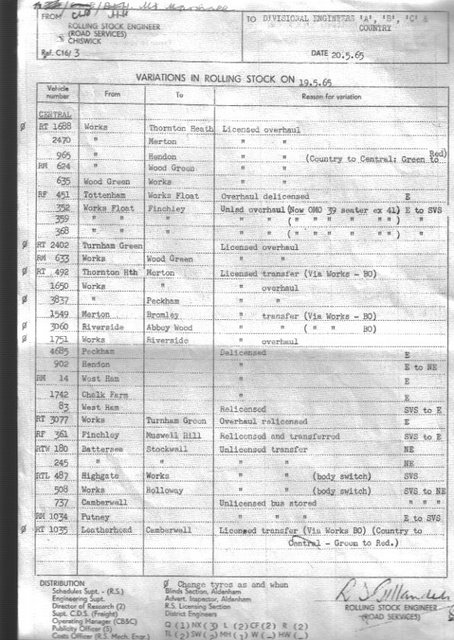 FROM
ROLLING STOCK ENGINEER
(ROAD SERVICES)
CHISWICK
Ref. C16/3
TO DIVISIONAL ENGINEERS 'A', 'B', 'C' &
COUNTRY
DATE 20.5.65
VARIATIONS IN ROLLING STOCK ON 19.5.65
Vehicle number From To Reason for variation
CENTRAL
Ø RT 1688 Works Thornton Heath Licensed overhaul
2470 " Merton " "
965 " Hendon " " (Country to Central: Green to Red)
RM 624 " Wood Green " "
635 Wood Green Works " "
RF 451 Tottenham Works Float Overhaul delicensed E
352 Works Float Finchley Unlad overhaul (Now OMO 39 seater ex 41) E to SVS
359 " " " " " ( " " " " ) "
368 " " " " " ( " " " " ) "
Ø RT 2402 Turnham Green Licensed overhaul
RM 633 Works Wood Green " "
Ø RT 492 Thornton Hth Merton Licensed transfer (Via Works - BO)
1650 Works " " overhaul
Ø 3837 " Peckham " "
1549 Merton Bromley " transfer (Via Works - BO)
Ø 3060 Riverside Abbey Wood " " ( " " BO)
Ø 1751 Works Riverside " overhaul
4685 Peckham Delicensed E
902 Hendon " E to NE
RM 14 West Ham " E
1742 Chalk Farm " E
83 West Ham Relicensed SVS to E
RT 3077 Works Turnham Green Overhaul relicensed E
RF 361 Finchley Muswell Hill Relicensed and transferred SVS to E
RTW 180 Battersea Stockwell Unlicensed transfer NE
245 " " " " NE
RTL 487 Highgate Works " " (body switch) SVS
508 Works Holloway " " (body switch) SVS to NE
737 Camberwell Unlicensed bus stored " " "
RM 1034 Putney " " " E to SVS
Ø RT 1035 Leatherhead Camberwell Licensed transfer (Via Works BO) (Country to
Central - Green to Red.)
DISTRIBUTION
Schedules Supt. - (R.S.)
Engineering Supt.
Director of Research (2)
Supt. C.D.S. (Freight)
Operating Manager (CB&C)
Publicity Officer (5)
Costs Officer (R.S. Mech. Engr.)
Ø Change tyres as and when
Blinds Section, Aldenham
Advert. Inspector, Aldenham
R.S. Licensing Section
District Engineers
ROLLING STOCK ENGINEER
(ROAD SERVICES)